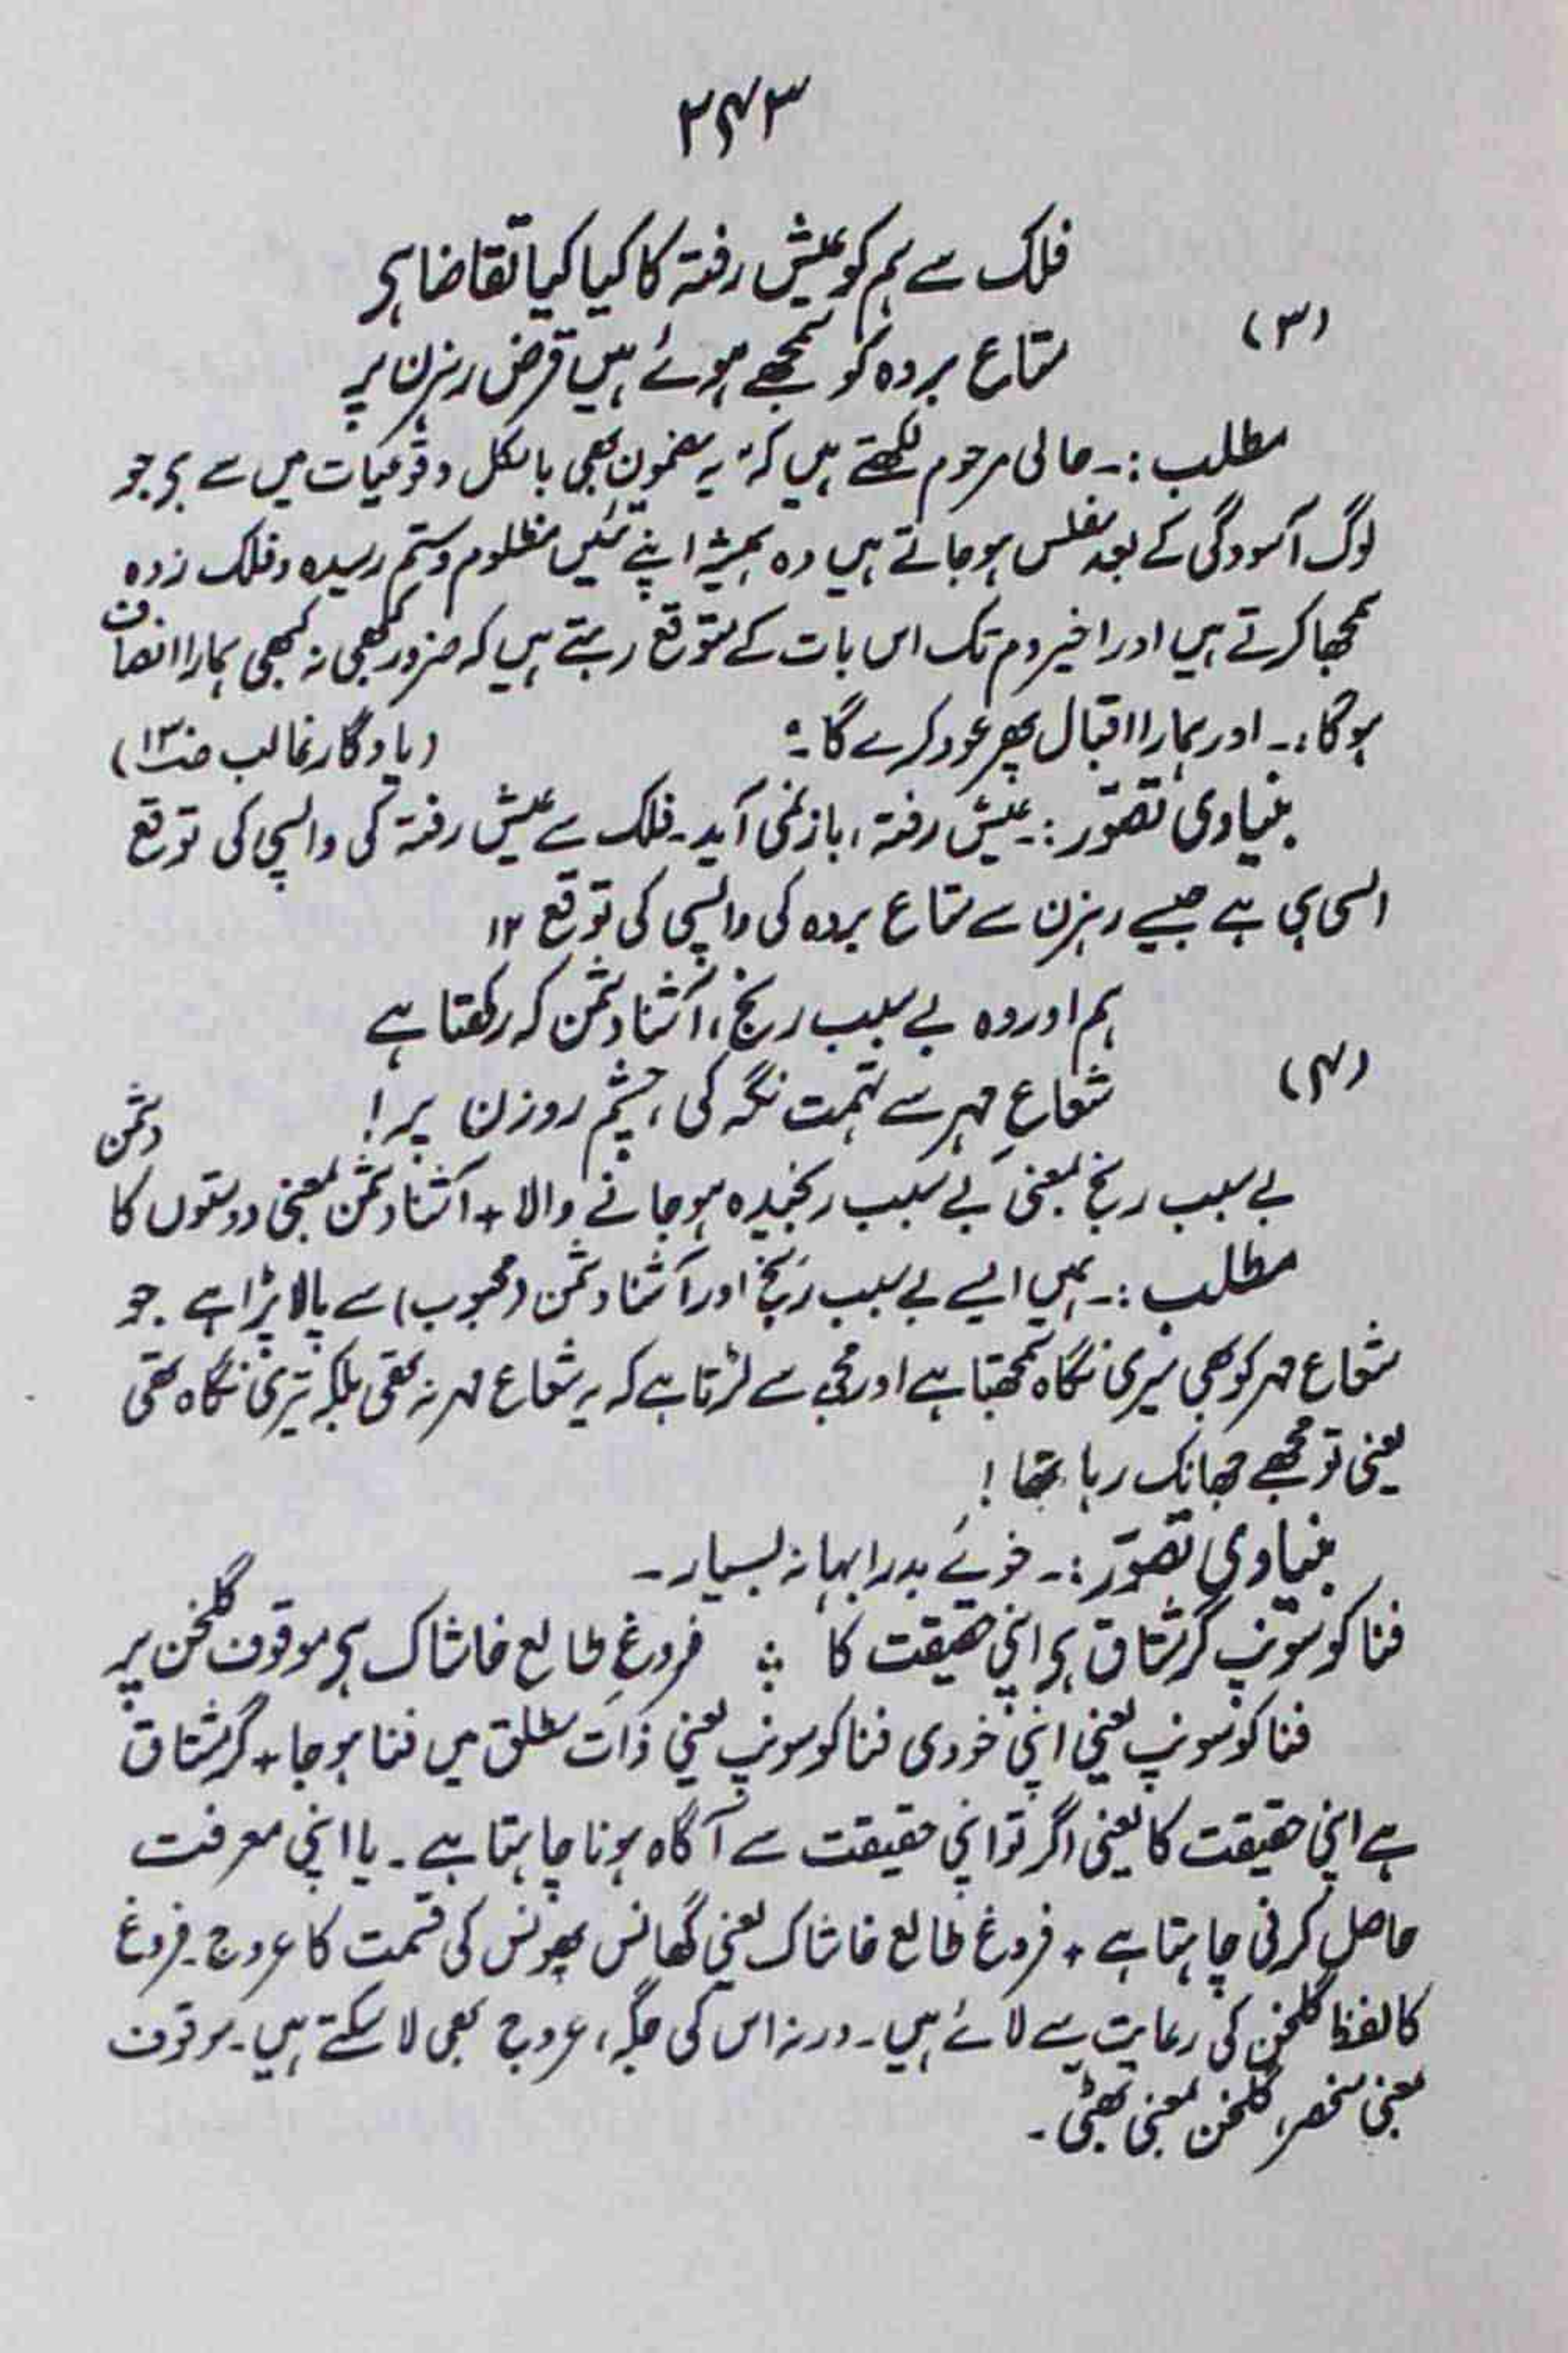 ۳۴۳
فلک سے ہم کو عیش رفتہ کا کیا کیا تقاضا ہی
(۳)
متاع بردہ کو سمجھے ہوئے ہیں قرض رہزن پر
مطلب :۔ حالی مرحوم لکھتے ہیں کہ "یہ مضمون بھی بالکل وقوعیات میں سے ہی جو
لوگ آسودگی کے بعد مفلس ہو جاتے ہیں وہ ہمیشہ اپنے تئیں مظلوم و ستم رسیدہ و فلک زدہ
سمجھا کرتے ہیں اور اخیر دم تک اس بات کے متوقع رہتے ہیں کہ ضرور کبھی نہ کبھی ہمارا انصاف
ہوگا۔ اور ہمارا اقبال پھر عود کرے گا۔" (یادگار غالب صـ۱۳)
بنیادی تصوّر :۔ عیش رفتہ، باز نمی آید۔ فلک سے عیش رفتہ کی واپسی کی توقع
ایسی ہی ہے جیسے رہزن سے متاع بردہ کی واپسی کی توقع ۱۲
ہم اور وہ بے سبب رنج، آشنا دشمن کہ رکھتا ہے
(۴)
شعاعِ مہر سے تہمت نگہ کی، چشم روزن پر!
بے سبب رنج بمعنی بے سبب رنجیدہ ہو جانے والا + آشنا دشمن بمعنی دوستوں کا دشمن
مطلب :۔ ہمیں ایسے بے سبب رنج اور آشنا دشمن (محبوب) سے پالا پڑا ہے جو
شعاع مہر کو بھی میری نگاہ سمجھتا ہے اور مجھ سے لڑتا ہے کہ یہ شعاع مہر نہ تھی بلکہ تیری نگاہ تھی
یعنی تو مجھے جھانک رہا تھا!
بنیادی تصوّر :۔ خوئے بد را بہانہ بسیار۔
فنا کو سونپ گر مشتاق ہی اپنی حقیقت کا ؞ فروغِ طالع خاشاک ہی موقوف گلخن پر
فنا کو سونپ یعنی اپنی خودی فنا کو سونپ یعنی ذات مطلق میں فنا ہو جا + گر مشتاق
ہے اپنی حقیقت کا یعنی اگر تو اپنی حقیقت سے آگاہ ہونا چاہتا ہے۔ یا اپنی معرفت
حاصل کرنی چاہتا ہے + فروغ طالع خاشاک یعنی گھانس پھونس کی قسمت کا عروج۔ فروغ
کا لفظ گلخن کی رعایت سے لائے ہیں۔ ورنہ اس کی جگہ، عروج بھی لا سکتے ہیں۔ موقوف
بمعنی منحصر، گلخن بمعنی بھٹی۔